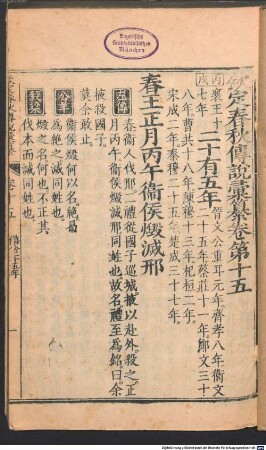 Bayerische
Staatsbibliothek
München
欽定春秋傳說彙纂卷第十五
襄王十
七年
二十有五年
晉文公重耳元年齊孝八年衛文
二十五年蔡莊十一年鄭文三十
八年曹共十八年陳穆十三年杞桓二年
宋成二年秦穆二十五年楚成三十七年
春王正月丙午衛侯燬滅邢
左傳
春衛人伐邢二禮從國子巡城掖以赴外殺之正
月丙午衛侯燬滅邢同姓也故名禮至為銘曰余
掖殺國子
莫余敢止
公羊
衛侯燬何以名絕曷
為絕之滅同姓也
穀梁
燬之名何也不正其
伐本而滅同姓也
卷十五
僖公二十五年
一